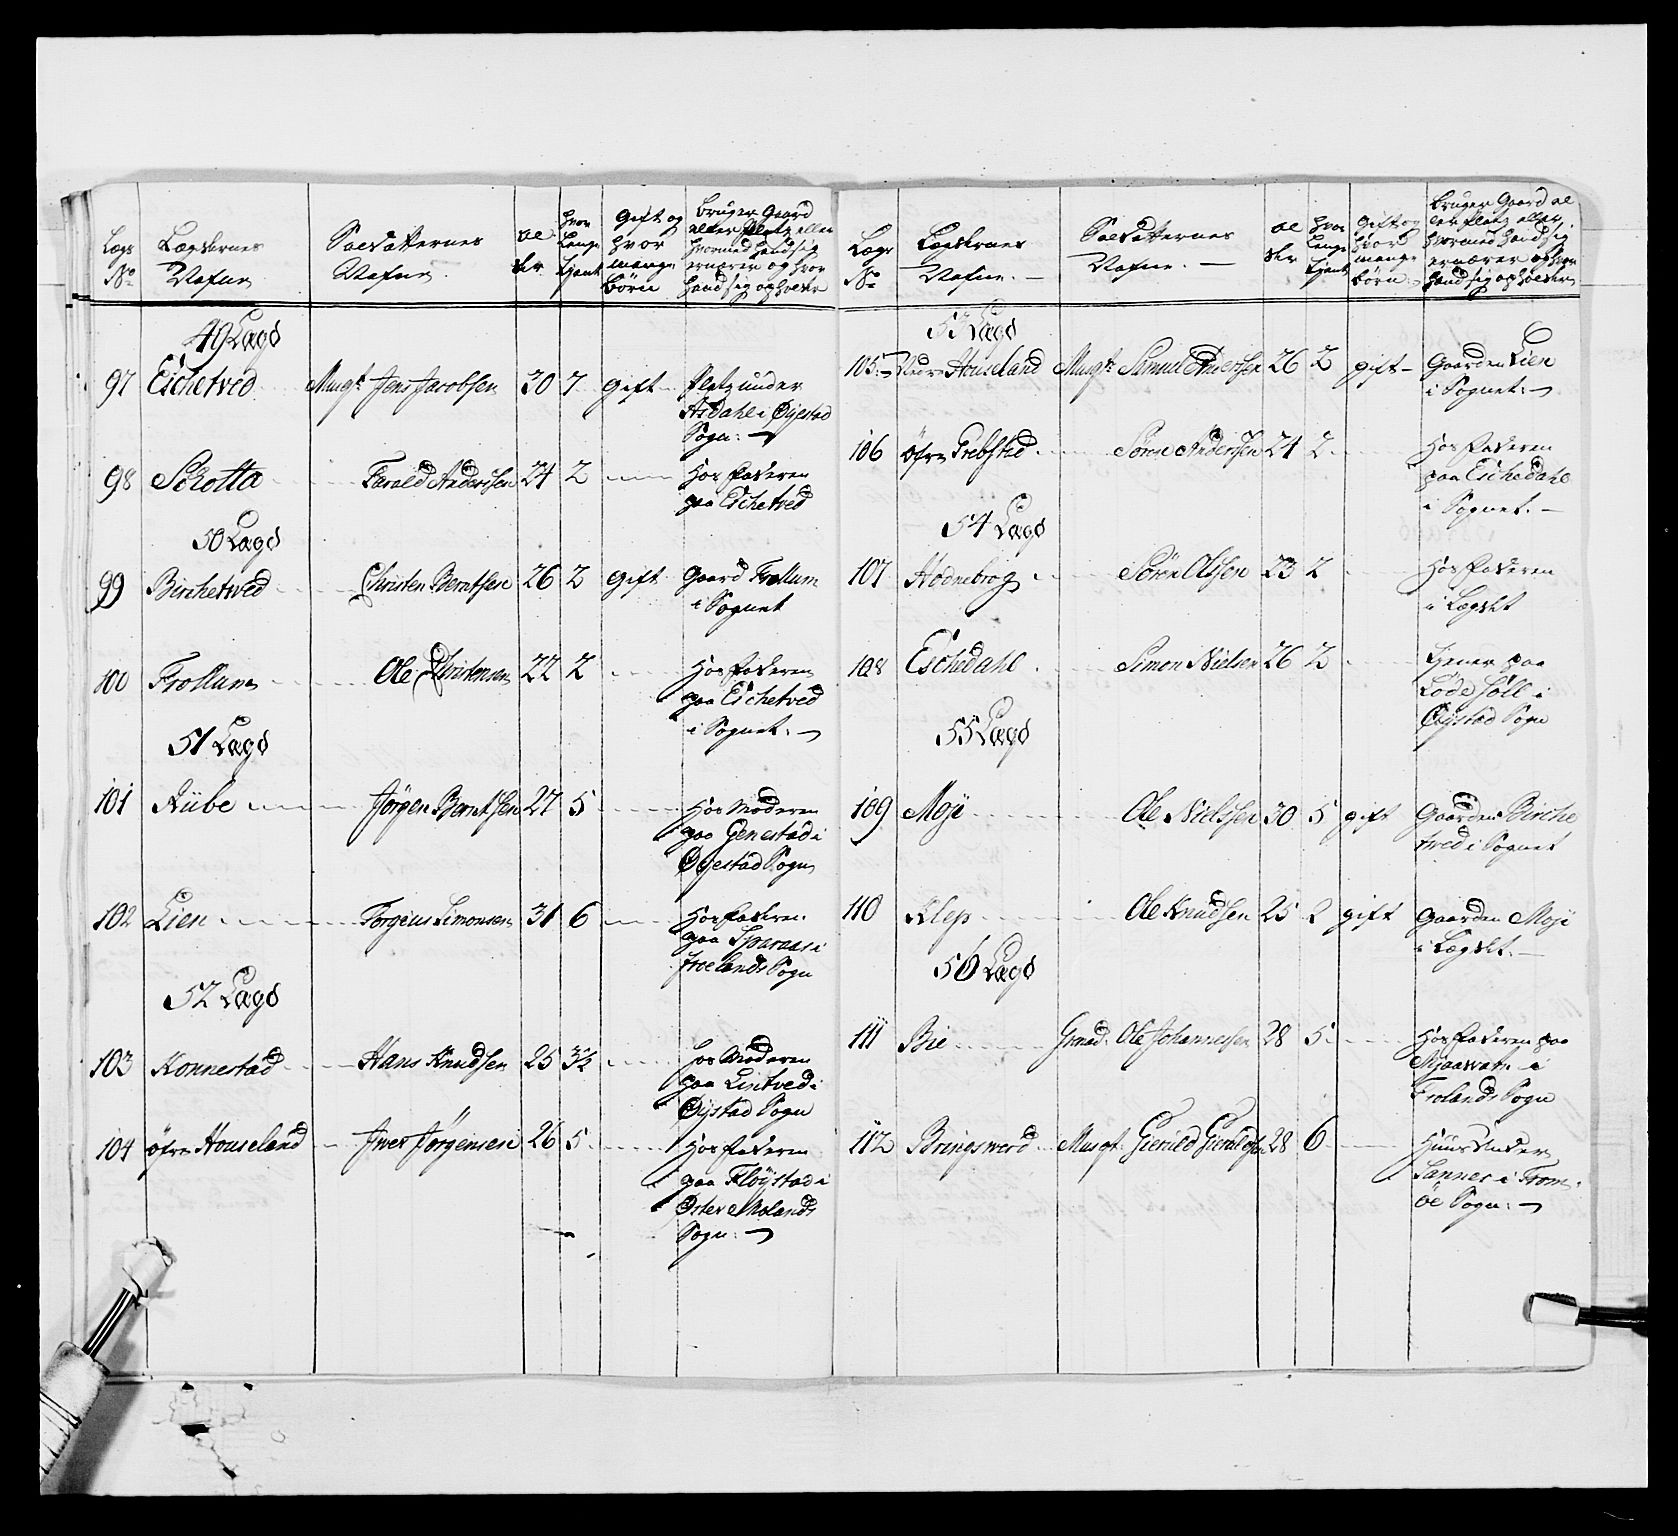 Lægs No
Lægdernes Nafne
Soldatternes Nafne
Al der
hvor Længe tjent
Gift og hvor mange börn
bruger Gaard eller Platz eller hvormed hand sig ernærer og hvor hand sig opholder
49 Lagd
97 Eschetved Musqt. Jens Jacobsen 30 7 gift platz under
Asdahl i Öyestad
Sogn:
98 Schotta Tarald Anderssen 24 2 hos faderen
paa Eschetved
50 Lagd
99 Birchetved Christen Berntsen 26 2 Gift Gaard Trollum
i Sognet
100 Trollum Ole Christensen 22 2 hos faderen
paa Eschetved
i Sognet.
51 Lagd
101 Rübe Jörgen Berntsen 27 5 hos Moderen
paa Genestad i
Öyestad Sogn
102 Lien Torgius Simonsen 31 6 hos faderen
paa Sparaas i
froelands Sogn
52 Lagd
103 Konnestad Hans Knudsen 25 3½ hos Moderen
paa Lintved i
Öyestad Sogn
104 öfre Houseland Iver Jörgensen 26 5 hos faderen
paa Flöystad i
Öster Molands
Sogn:
Lægs No
Lægdernes Nafne.
Soldatternes Nafne.
Al der
hvor Længe tjent
gift og hvor mange börn
bruger Gaard el ler platz eller hvormed hand sig ernærer og hvor hand sig opholder
53 Lagd
105 Nedre Houseland Musqt. Samuel Andersen 26 2 gift Gaarden Lien
i Sognet:
106 öfre Trebsted Sören Andersen 24 2 hos faderen
paa Eschedahl
i Sognet.
54 Lagd
107 Hodnebrog Sören Olssen 23 2 hos faderen
i Lægdet
108 Eschedahl Simon Nielsen 26 2 tjener paa
Löde Söll i
Öyestad Sogn
55 Lagd
109 Moji Ole Nielssen 30 5 gift Gaarden Birche
tved i Sognet
110 Klep Ole Knudsen 25 2 gift gaarden Moji
i Lægdet.
56 Lagd
111 Bie Grenad. Ole Johannessen 28 5 hos faderen paa
Mjaavatn i
Frolands Sogn
112 Bringsverd Musqt. Gieruld Gieruldsen 28 6 Huus under
Sannes i Trom
öe Sogn: